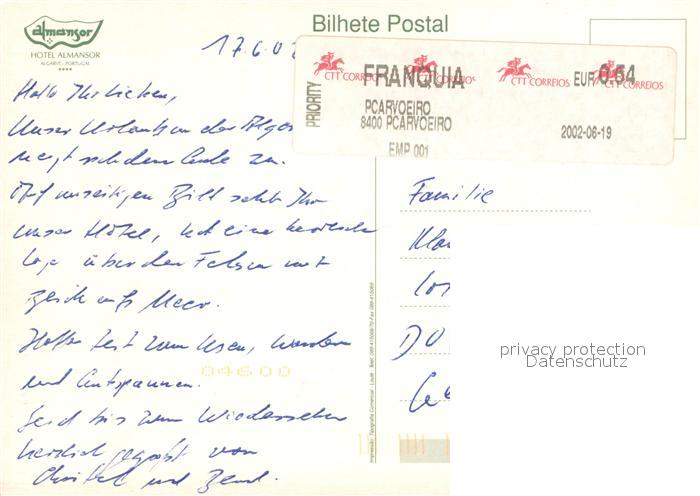 almansor
HOTEL ALMANSOR
ALGARVE - PORTUGAL
****
Bilhete Postal
17.6.02
CTT CORREIOS
CTT CORREIOS
CTT CORREIOS
PRIORITY
FRANQUIA
EUR 0.54
PCARVOEIRO
8400 PCARVOEIRO
2002-06-19
EMP 001
Hallo Ihr Lieben,
Unser Urlaub an der Algar
neigt sich dem Ende zu.
Auf umseitigen Bild seht Ihr
unser Hotel, hat eine herrliche
Lage über den Felsen mit
Blick aufs Meer.
Haben Zeit zum Lesen, Wandern
und Entspannen.
Seid bis zum Wiedersehen
herzlich gegrüßt von
Christel und Bernd.
04600
Familie
Kla
DO
privacy protection
Datenschutz